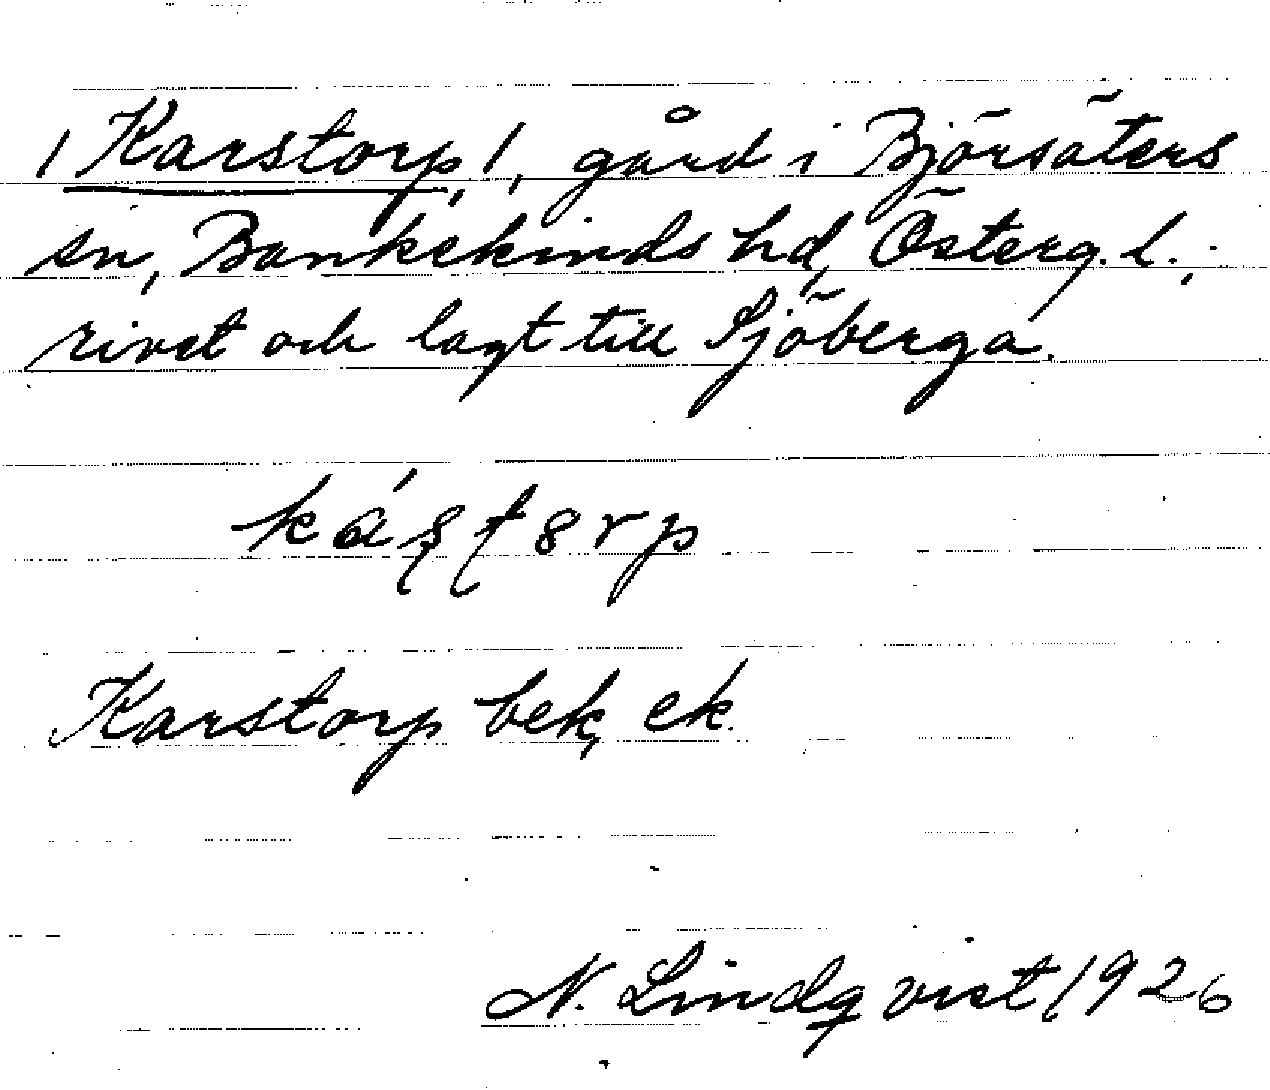 /Karstorp,/, gård i Björsäters
sn, Bankekinds hd, Österg. l.;
rivet och lagt till Sjöberga.
Karstorp bek, ek.
N. Lindqvist 1926